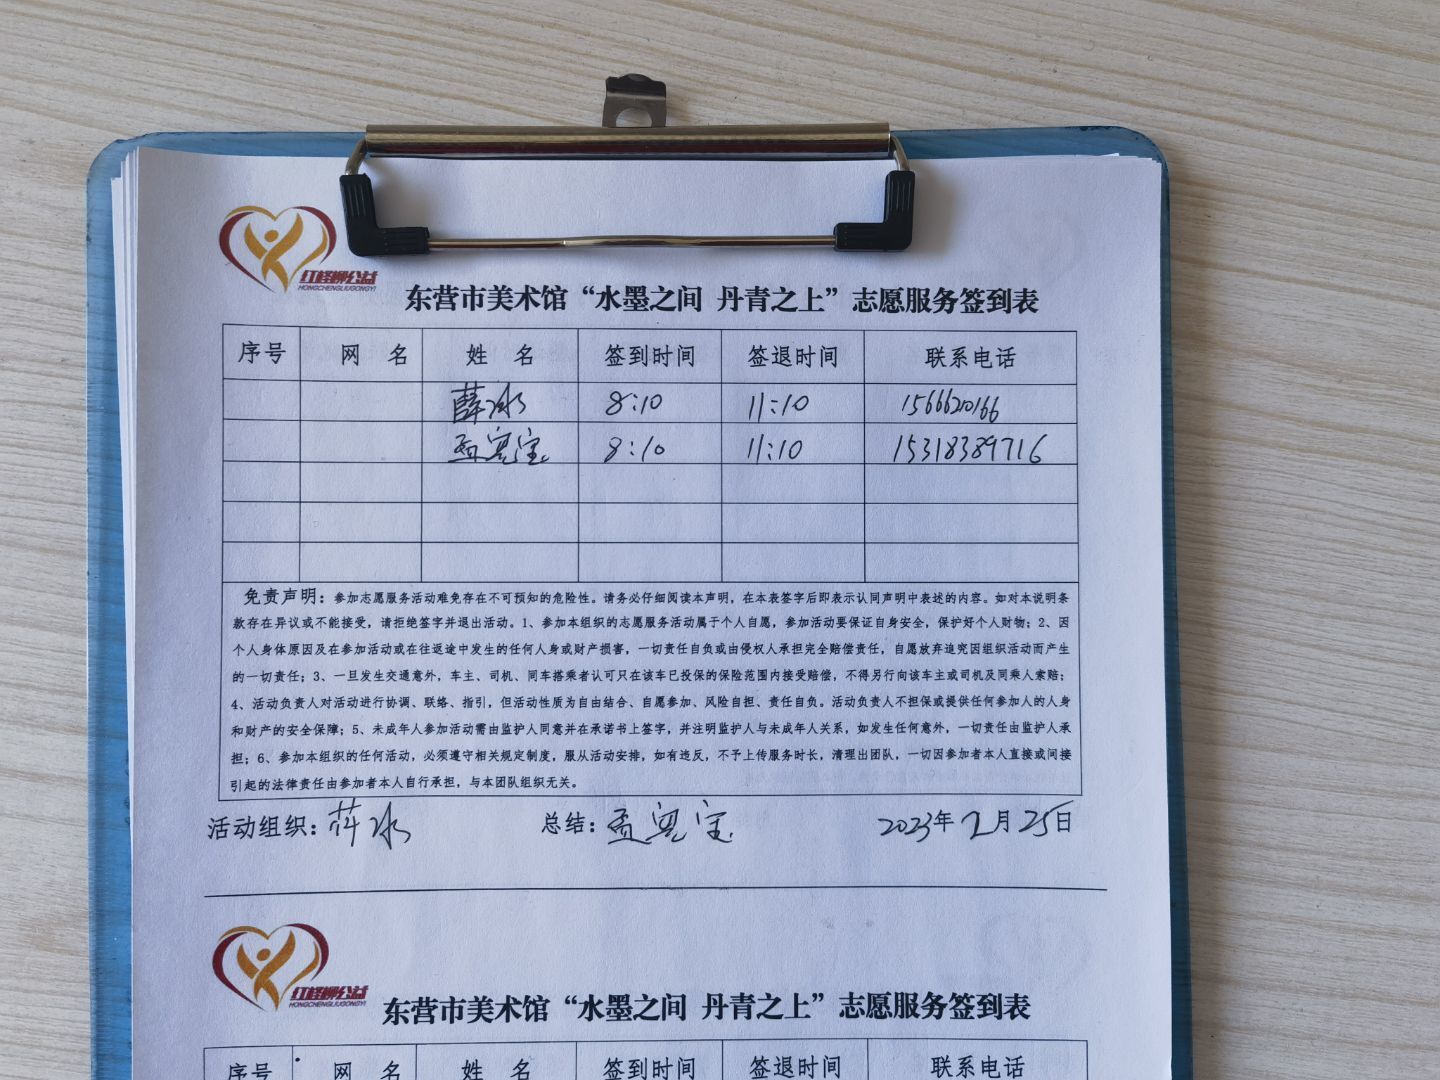 红柽柳公益
HONGCHENGLIUGONGYI
东营市美术馆“水墨之间 丹青之上”志愿服务签到表
序号 网 名 姓 名 签到时间 签退时间 联系电话
薛冰 8:10 11:10 15666210166
孟宪宝 8:10 11:10 15318389716
免责声明：参加志愿服务活动难免存在不可预知的危险性。请务必仔细阅读本声明，在本表签字后即表示认同声明中表述的内容。如对本说明条
款存在异议或不能接受，请拒绝签字并退出活动。1、参加本组织的志愿服务活动属于个人自愿，参加活动要保证自身安全，保护好个人财物；2、因
个人身体原因及在参加活动或在往返途中发生的任何人身或财产损害，一切责任自负或由侵权人承担完全赔偿责任，自愿放弃追究因组织活动而产生
的一切责任；3、一旦发生交通意外，车主、司机、同车搭乘者认可只在该车已投保的保险范围内接受赔偿，不得另行向该车主或司机及同乘人索赔；
4、活动负责人对活动进行协调、联络、指引，但活动性质为自由结合、自愿参加、风险自担、责任自负。活动负责人不担保或提供任何参加人的人身
和财产的安全保障；5、未成年人参加活动需由监护人同意并在承诺书上签字，并注明监护人与未成年人关系，如发生任何意外，一切责任由监护人承
担；6、参加本组织的任何活动，必须遵守相关规定制度，服从活动安排，如有违反，不予上传服务时长，清理出团队，一切因参加者本人直接或间接
引起的法律责任由参加者本人自行承担，与本团队组织无关。
活动组织：薛冰 总结：孟宪宝 2023年2月25日
红柽柳公益
HONGCHENGLIUGONGYI
东营市美术馆“水墨之间 丹青之上”志愿服务签到表
序号 网 名 姓 名 签到时间 签退时间 联系电话